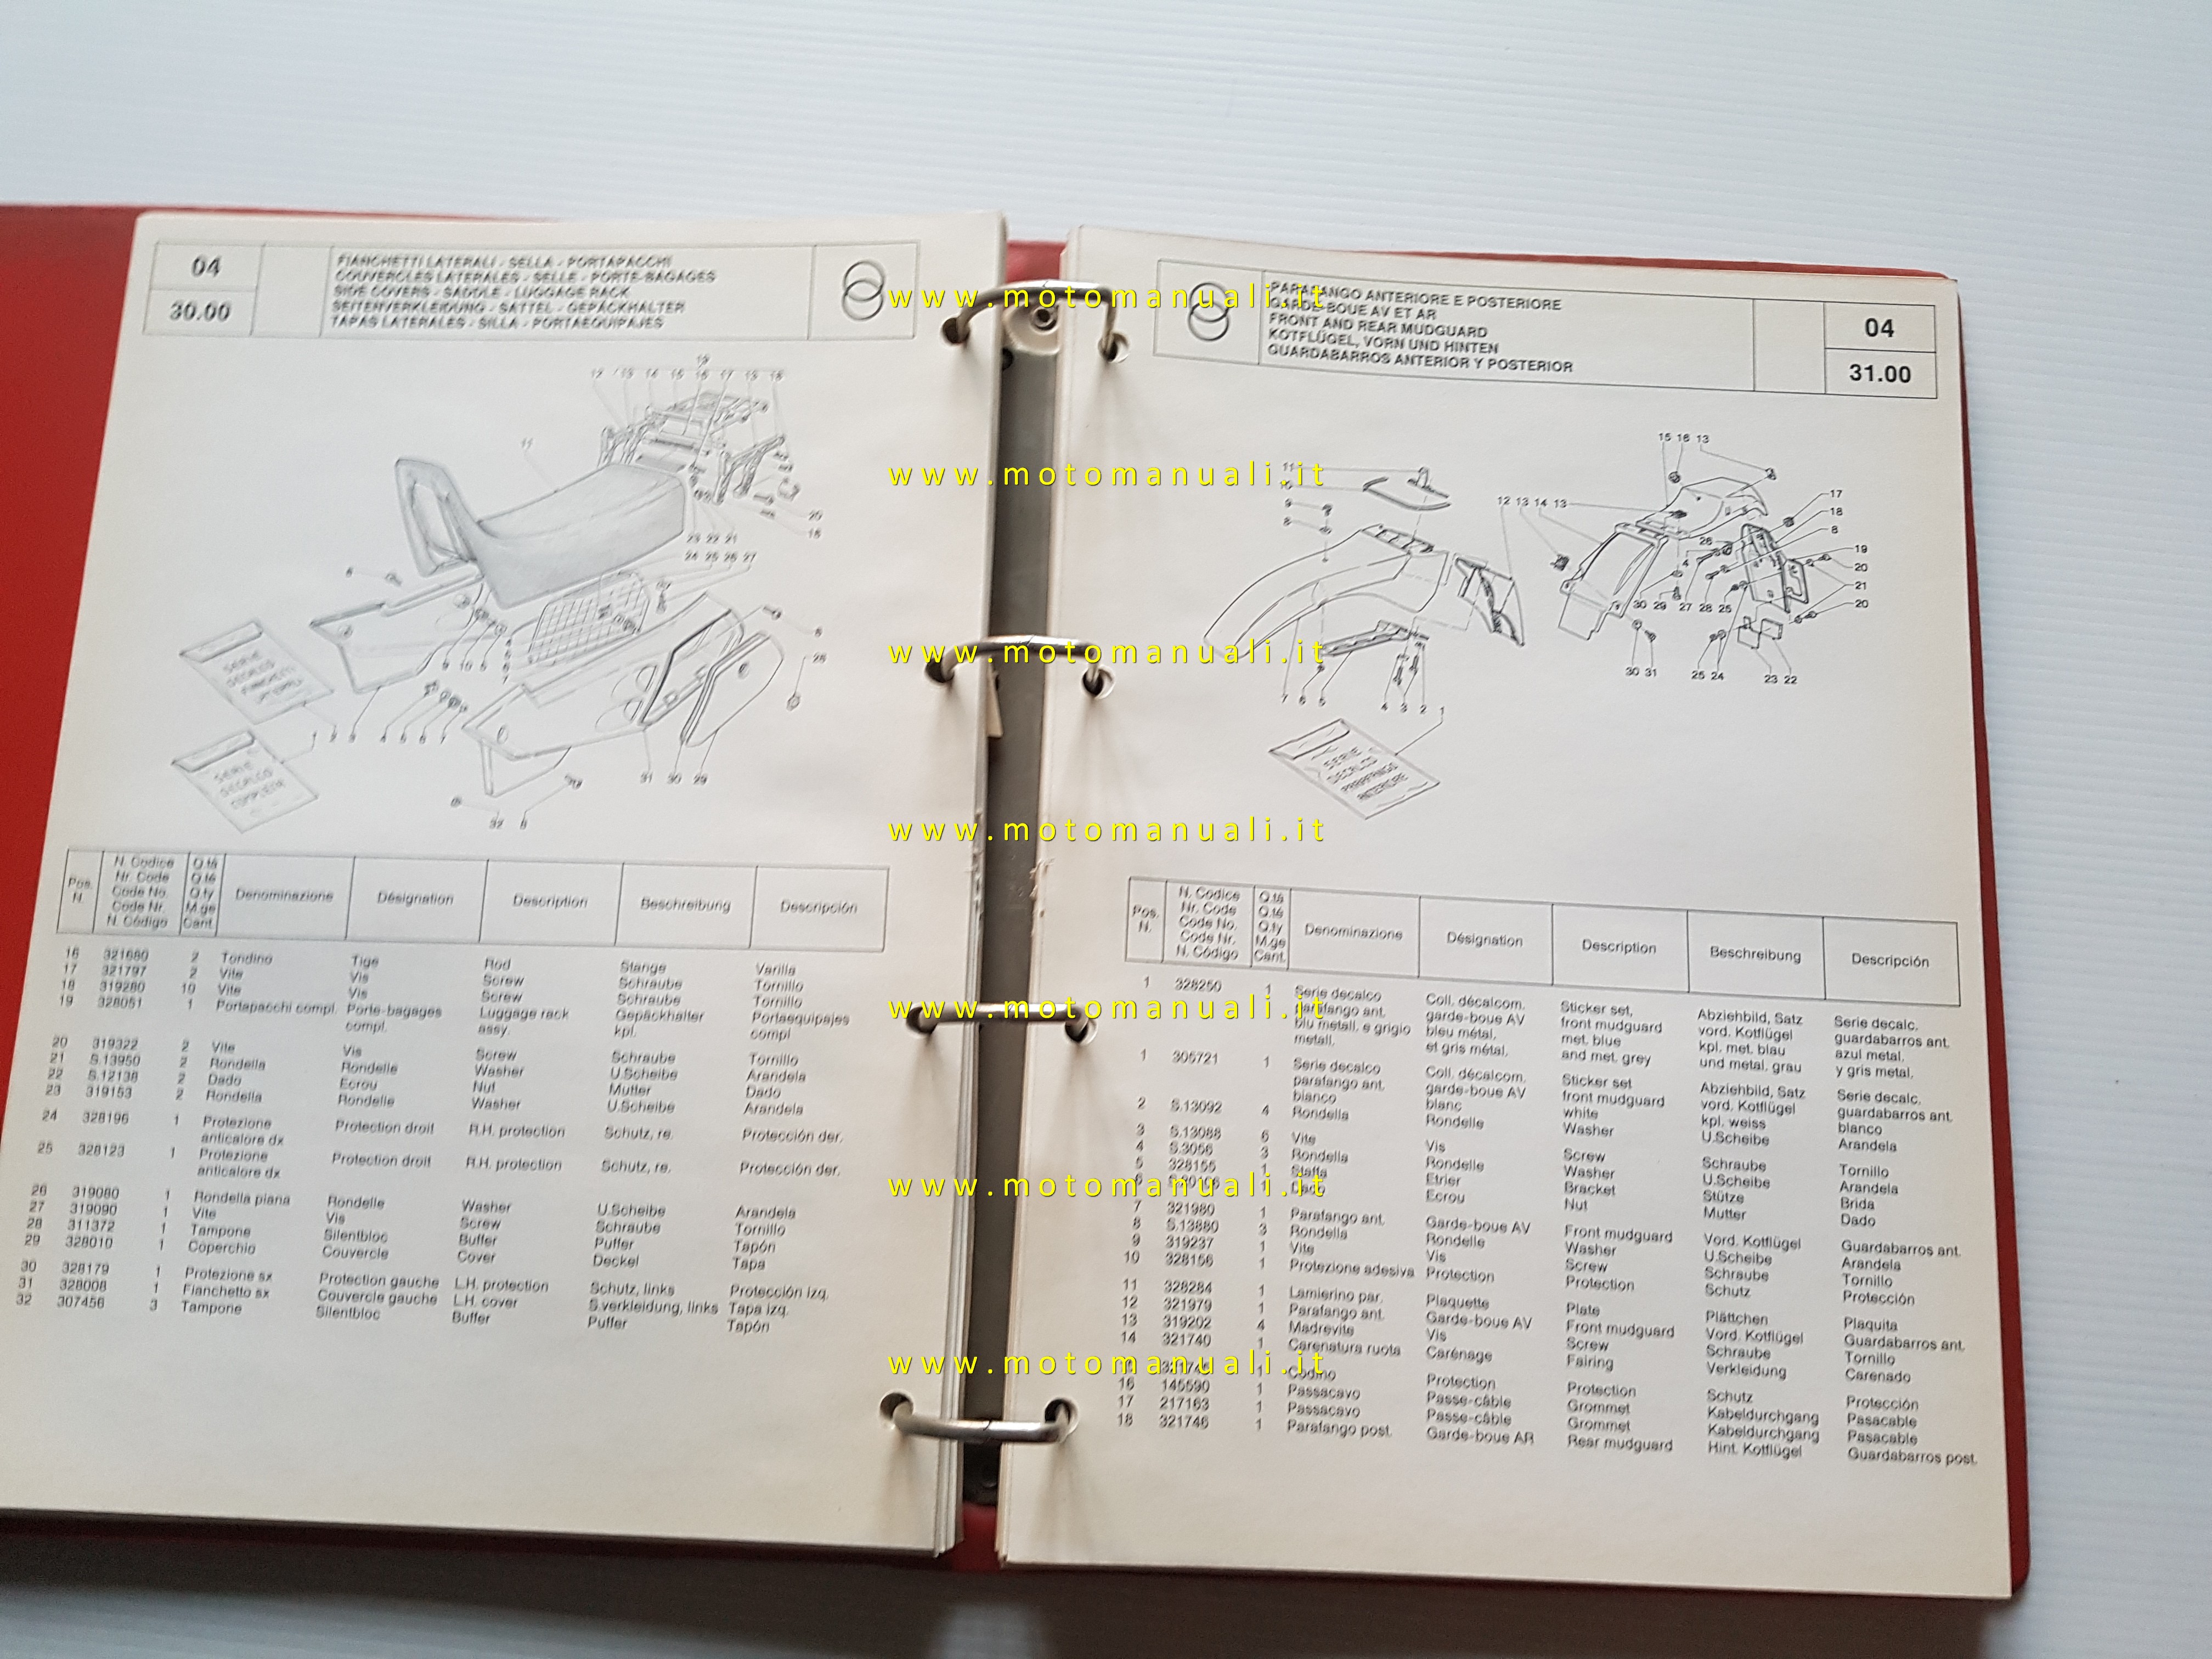 04
30.00
FIANCHETTI LATERALI - SELLA - PORTAPACCHI
COUVERCLES LATERALES - SELLE - PORTE-BAGAGES
SIDE COVERS - SADDLE - LUGGAGE RACK
SEITENVERKLEIDUNG - SATTEL - GEPÄCKHALTER
TAPAS LATERALES - SILLA - PORTAEQUIPAJES
SERIE
DECALCO
SERIE
DECALCO
COMPLETA
Pos. N. | N. Codice Nr. Code Code No. Code Nr. N. Código | Q.tá Q.té Q.ty M.ge Cant. | Denominazione | Désignation | Description | Beschreibung | Descripción
16 321680 2 Tondino Tige Rod Stange Varilla
17 321797 2 Vite Vis Screw Schraube Tornillo
18 319280 10 Vite Vis Screw Schraube Tornillo
19 328051 1 Portapacchi compl. Porte-bagages compl. Luggage rack assy. Gepäckhalter kpl. Portaequipajes compl
20 319322 2 Vite Vis Screw Schraube Tornillo
21 S.13950 2 Rondella Rondelle Washer U.Scheibe Arandela
22 S.12138 2 Dado Ecrou Nut Mutter Dado
23 319153 2 Rondella Rondelle Washer U.Scheibe Arandela
24 328196 1 Protezione anticalore dx Protection droit R.H. protection Schutz, re. Protección der.
25 328123 1 Protezione anticalore dx Protection droit R.H. protection Schutz, re. Protección der.
26 319080 1 Rondella piana Rondelle Washer U.Scheibe Arandela
27 319090 1 Vite Vis Screw Schraube Tornillo
28 311372 1 Tampone Silentbloc Buffer Puffer Tapón
29 328010 1 Coperchio Couvercle Cover Deckel Tapa
30 328179 1 Protezione sx Protection gauche L.H. protection Schutz, links Protección izq.
31 328008 1 Fianchetto sx Couvercle gauche L.H. cover S.verkleidung, links Tapa izq.
32 307456 3 Tampone Silentbloc Buffer Puffer Tapón
PARAFANGO ANTERIORE E POSTERIORE
GARDE-BOUE AV ET AR
FRONT AND REAR MUDGUARD
KOTFLÜGEL, VORN UND HINTEN
GUARDABARROS ANTERIOR Y POSTERIOR
04
31.00
SERIE
DECALCO
PARAFANGO
ANTERIORE
Pos. N. | N. Codice Nr. Code Code No. Code Nr. N. Código | Q.tá Q.té Q.ty M.ge Cant. | Denominazione | Désignation | Description | Beschreibung | Descripción
1 328250 1 Serie decalco parafango ant. blu metall. e grigio metall. Coll. décalcom. garde-boue AV bleu métal. et gris métal. Sticker set, front mudguard met. blue and met. grey Abziehbild, Satz vord. Kotflügel kpl. met. blau und metal. grau Serie decalc. guardabarros ant. azul metal. y gris metal.
1 305721 1 Serie decalco parafango ant. bianco Coll. décalcom. garde-boue AV blanc Sticker set front mudguard white Abziehbild, Satz vord. Kotflügel kpl. weiss Serie decalc. guardabarros ant. blanco
2 S.13092 4 Rondella Rondelle Washer U.Scheibe Arandela
3 S.13088 6 Vite Vis Screw Schraube Tornillo
4 S.3056 3 Rondella Rondelle Washer U.Scheibe Arandela
5 328155 1 Staffa Etrier Bracket Stütze Brida
6 1 Dado Ecrou Nut Mutter Dado
7 321980 1 Parafango ant. Garde-boue AV Front mudguard Vord. Kotflügel Guardabarros ant.
8 S.13880 3 Rondella Rondelle Washer U.Scheibe Arandela
9 319237 1 Vite Vis Screw Schraube Tornillo
10 328156 1 Protezione adesiva Protection Protection Schutz Protección
11 328284 1 Lamierino par. Plaquette Plate Plättchen Plaquita
12 321979 1 Parafango ant. Garde-boue AV Front mudguard Vord. Kotflügel Guardabarros ant.
13 319202 4 Madrevite Vis Screw Schraube Tornillo
14 321740 1 Carenatura ruota Carénage Fairing Verkleidung Carenado
15 1 Codino Protection Protection Schutz Protección
16 145590 1 Passacavo Passe-câble Grommet Kabeldurchgang Pasacable
17 217163 1 Passacavo Passe-câble Grommet Kabeldurchgang Pasacable
18 321746 1 Parafango post. Garde-boue AR Rear mudguard Hint. Kotflügel Guardabarros post.
www.motomanuali.it
www.motomanuali.it
www.motomanuali.it
www.motomanuali.it
www.motomanuali.it
www.motomanuali.it
www.motomanuali.it